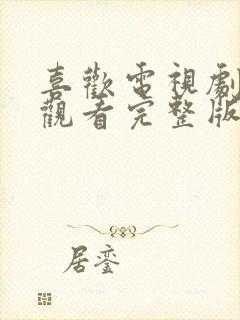 喜歡電視劇
觀看完整版
居鸾